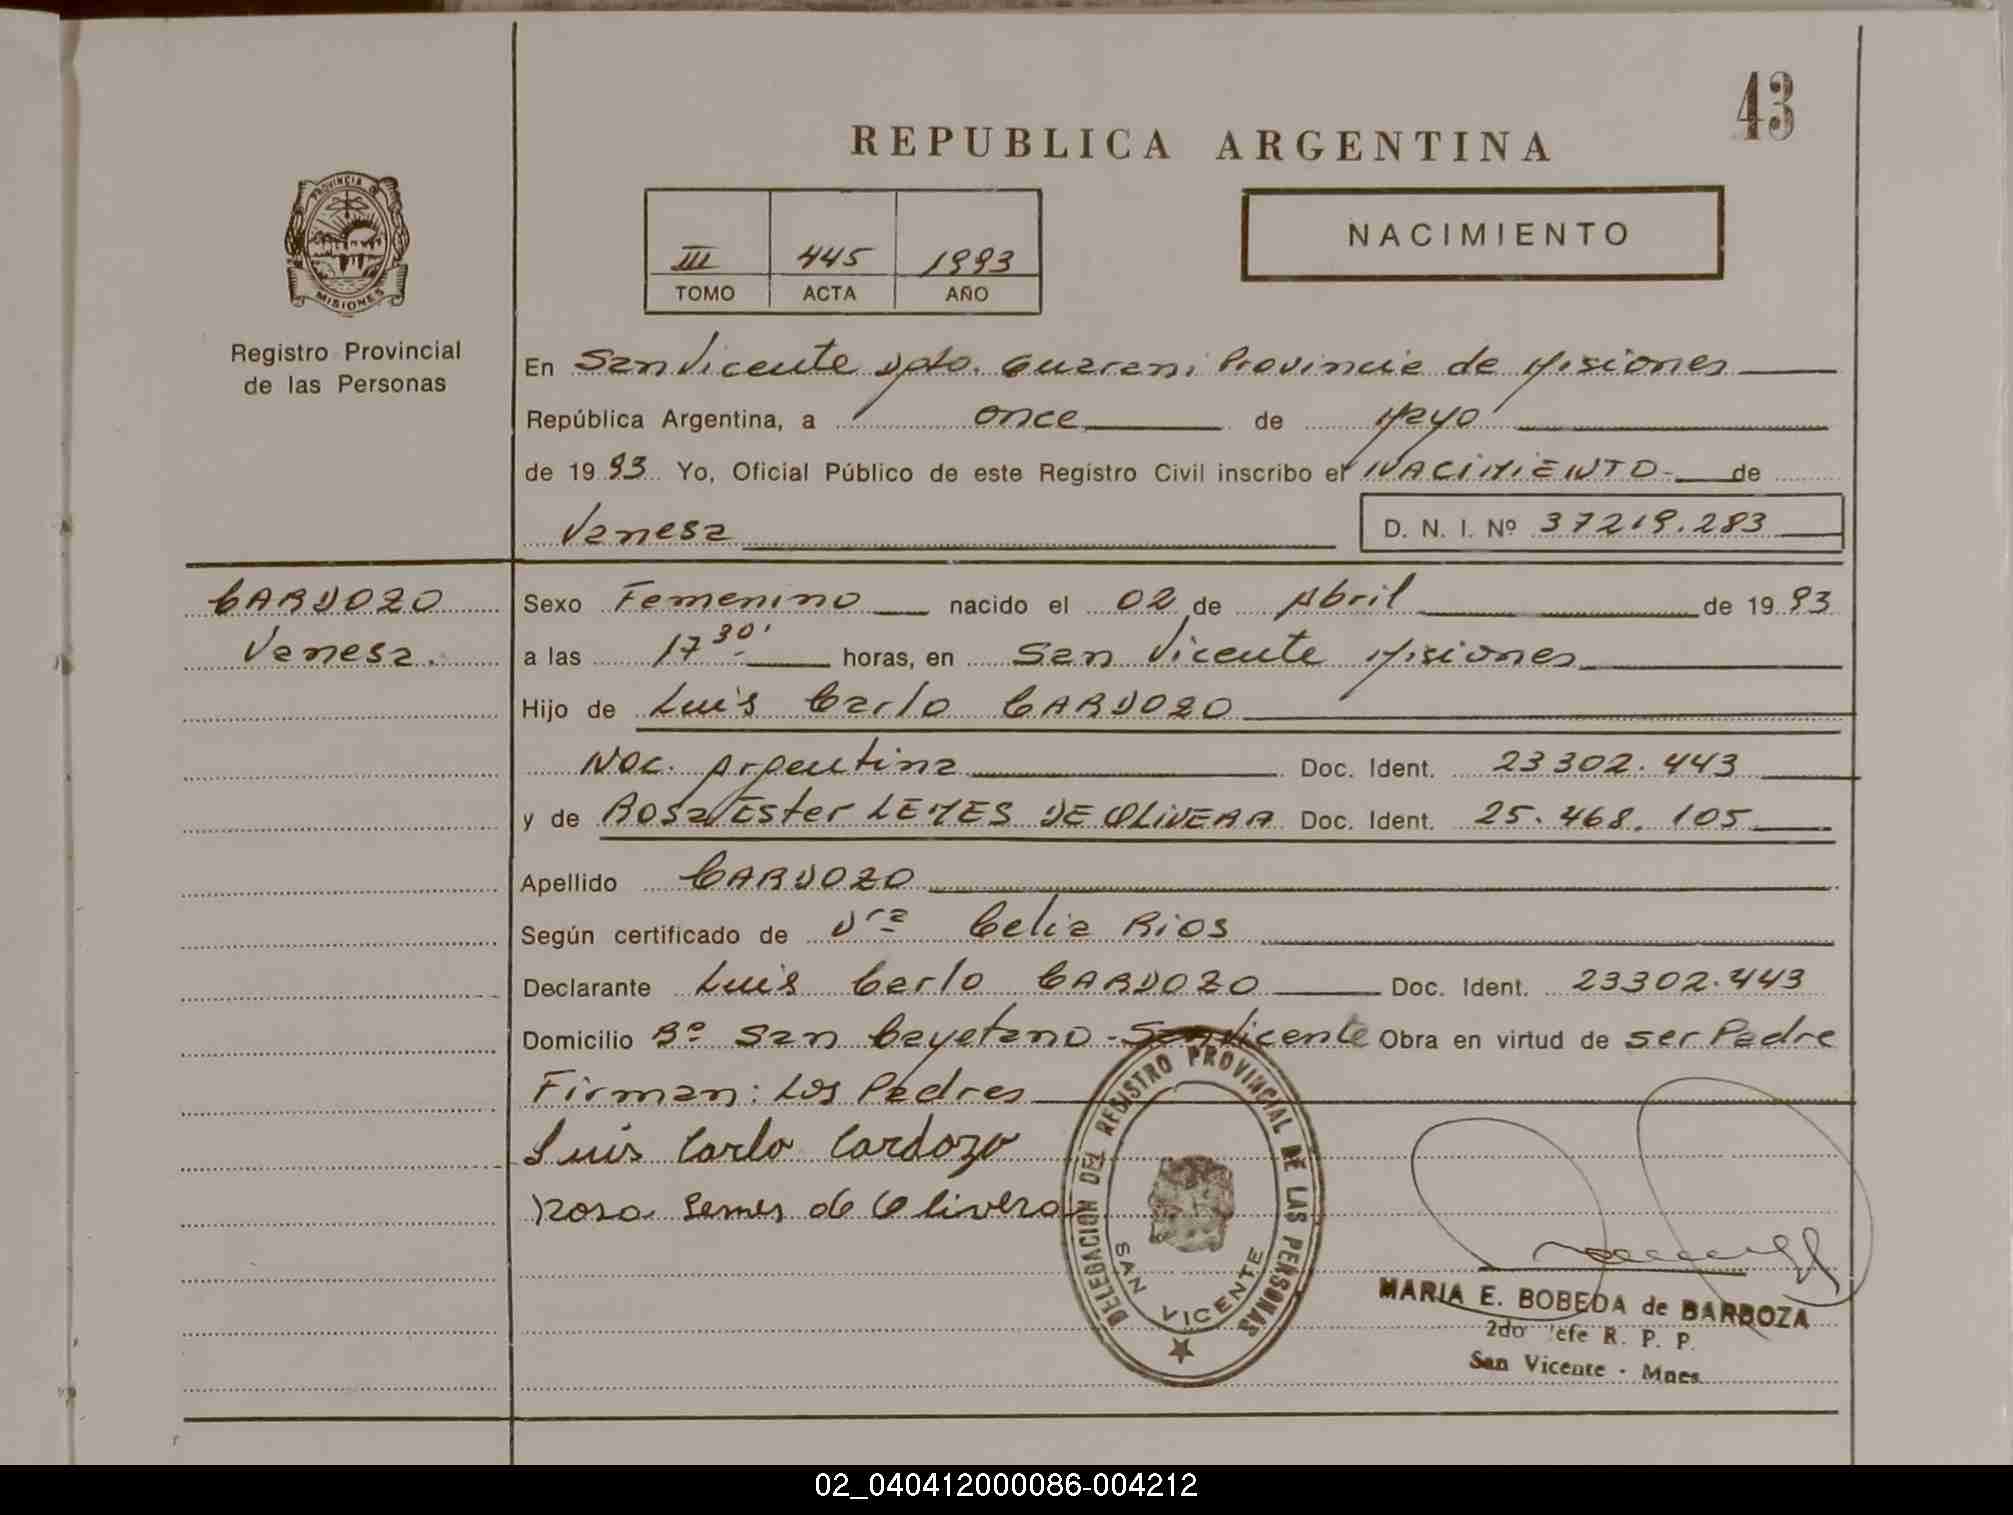 43
REPUBLICA ARGENTINA
PROVINCIA DE
MISIONES
Registro Provincial
de las Personas
III 445 1993
TOMO ACTA AÑO
NACIMIENTO
En San Vicente Dpto. Guarani Provincia de Misiones
República Argentina, a once de Mayo
de 1993 Yo, Oficial Público de este Registro Civil inscribo el NACIMIENTO- de
Vanesa D. N. I. Nº 37219.283
CARDOZO
Vanesa.
Sexo Femenino nacido el 02 de Abril de 1993
a las 17 30' horas, en San Vicente Misiones
Hijo de Luis Carlo CARDOZO
Nac. Argentina Doc. Ident. 23302.443
y de Rosa Ester LEMES DE OLIVERA Doc. Ident. 25.468.105
Apellido CARDOZO
Según certificado de Dra Celia Rios
Declarante Luis Carlo CARDOZO Doc. Ident. 23302.443
Domicilio Bº San Cayetano - San Vicente Obra en virtud de ser Padre
Firman: Los Padres
Luis Carlo Cardozo
Rosa Lemes de Olivera
DELEGACION DEL REGISTRO PROVINCIAL DE LAS PERSONAS
SAN VICENTE
MARIA E. BOBEDA de BARBOZA
2do Jefe R. P. P.
San Vicente - Mnes
02_040412000086-004212